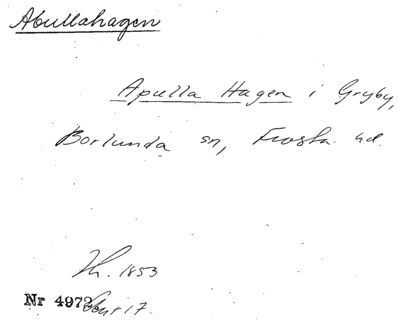 Abullahagen
Apulla Hagen i Gryby,
Borlunda sn, Frosta hd.
Th. 1853
Nr 4972